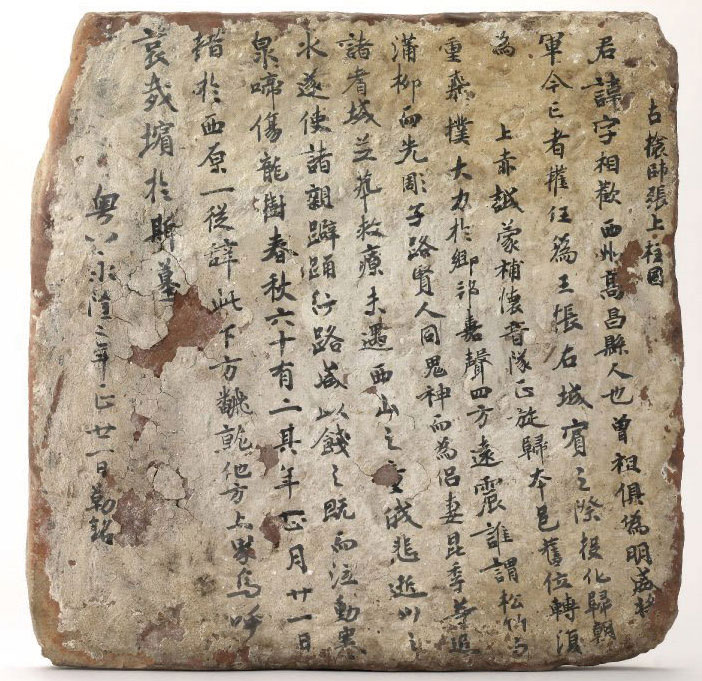 古槍師張上柱國
君諱字相歡西州高昌縣人也曾祖俱爲明威
軍今亡者擢任爲王張右城賓之際投化歸朝
為上赤越蒙補懷音隊正旋歸本邑舊位轉復
重燕撲大力於鄉邦嘉聲四方遠震誰謂松竹与
蒲柳而先彫子路賢人同鬼神而為侶妻昆季等追
諸省城並葬救療未遇西山之童俄悲逝川之
水遂使諸親躃踊行路咸以餞之既而泣動寒
泉啼傷龍樹春秋六十有二其年正月廿一日
於西原一從諱此下方飜他方上界嗚呼
哀哉殯於斯墓
粤以永隆二年正廿一日勒銘